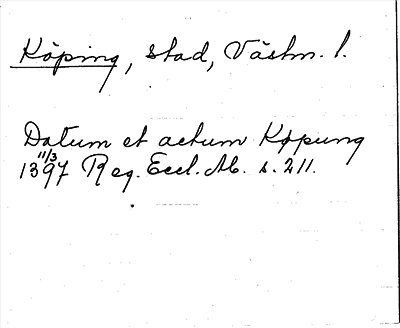 Köping, stad, Västm. l.
Datum et actum Køpung
11/3
1397 Reg. Eccl. Ab. s. 211.